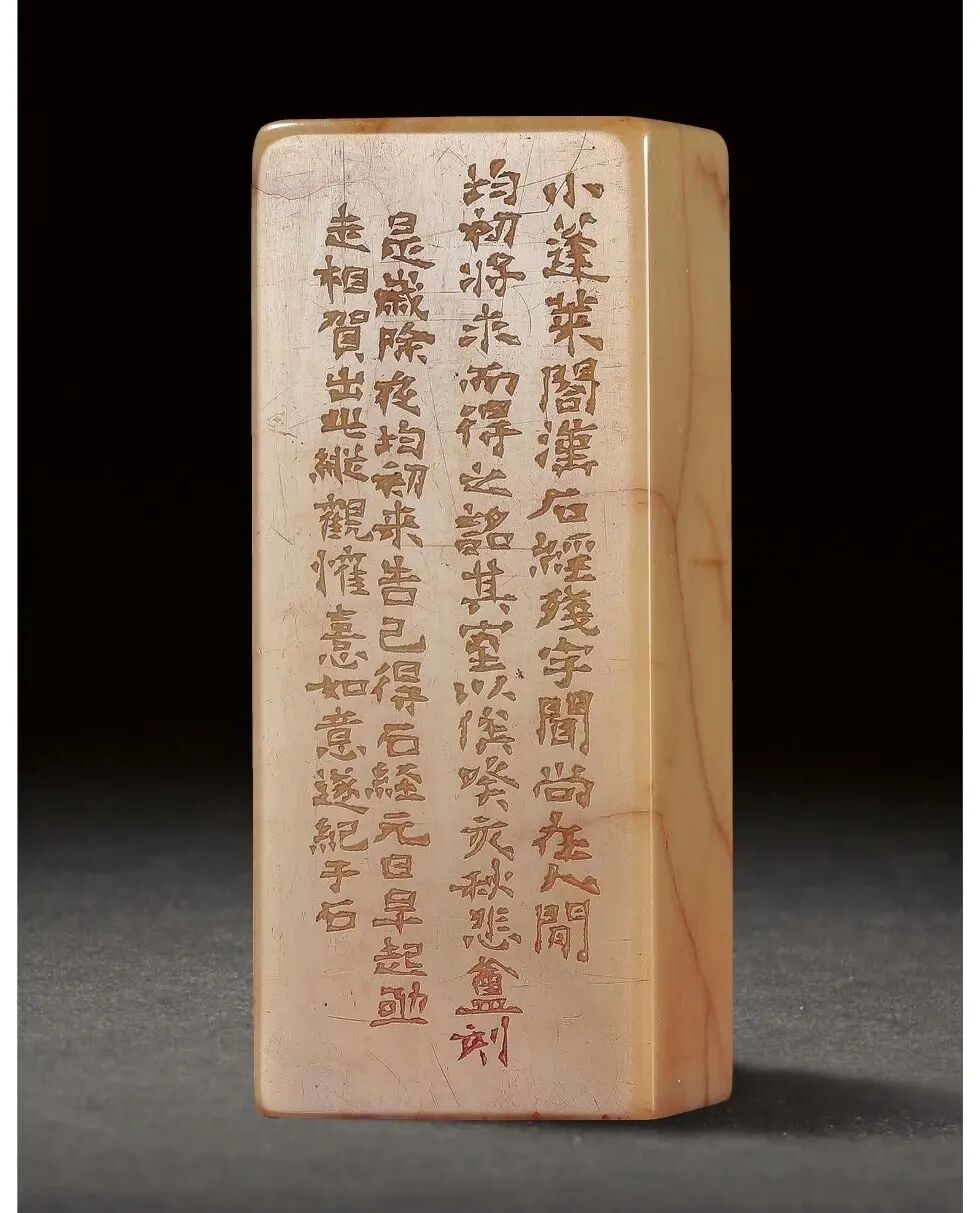 小蓬萊閣漢石經殘字聞尚在人間
均初將求而得之銘其室以俟癸亥秋悲盦刻
是歲除夜均初来告已得石経元日早起亟
走相賀出此縱觀懽憙如意遂紀于石